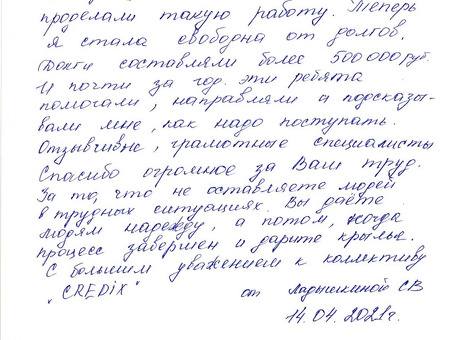 проделали такую работу. Теперь
я стала свободна от долгов.
Долги составляли более 500 000 руб.
И почти за год. эти ребята
помогали, направляли и подсказы-
вали мне, как надо поступать.
Отзывчивые, грамотные специалисты
Спасибо огромное за Ваш труд.
За то, что не оставляете людей
в трудных ситуациях. Вы даёте
людям надежду, а потом, когда
процесс завершен и дарите крылья.
С большим уважением к коллективу
"CREDIX" от Ладышкиной СВ
14.04.2021г.